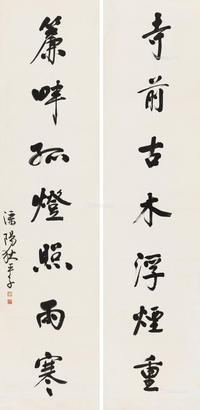 寺前古木浮煙重
簾畔孤燈照雨寒
溧陽狄平子